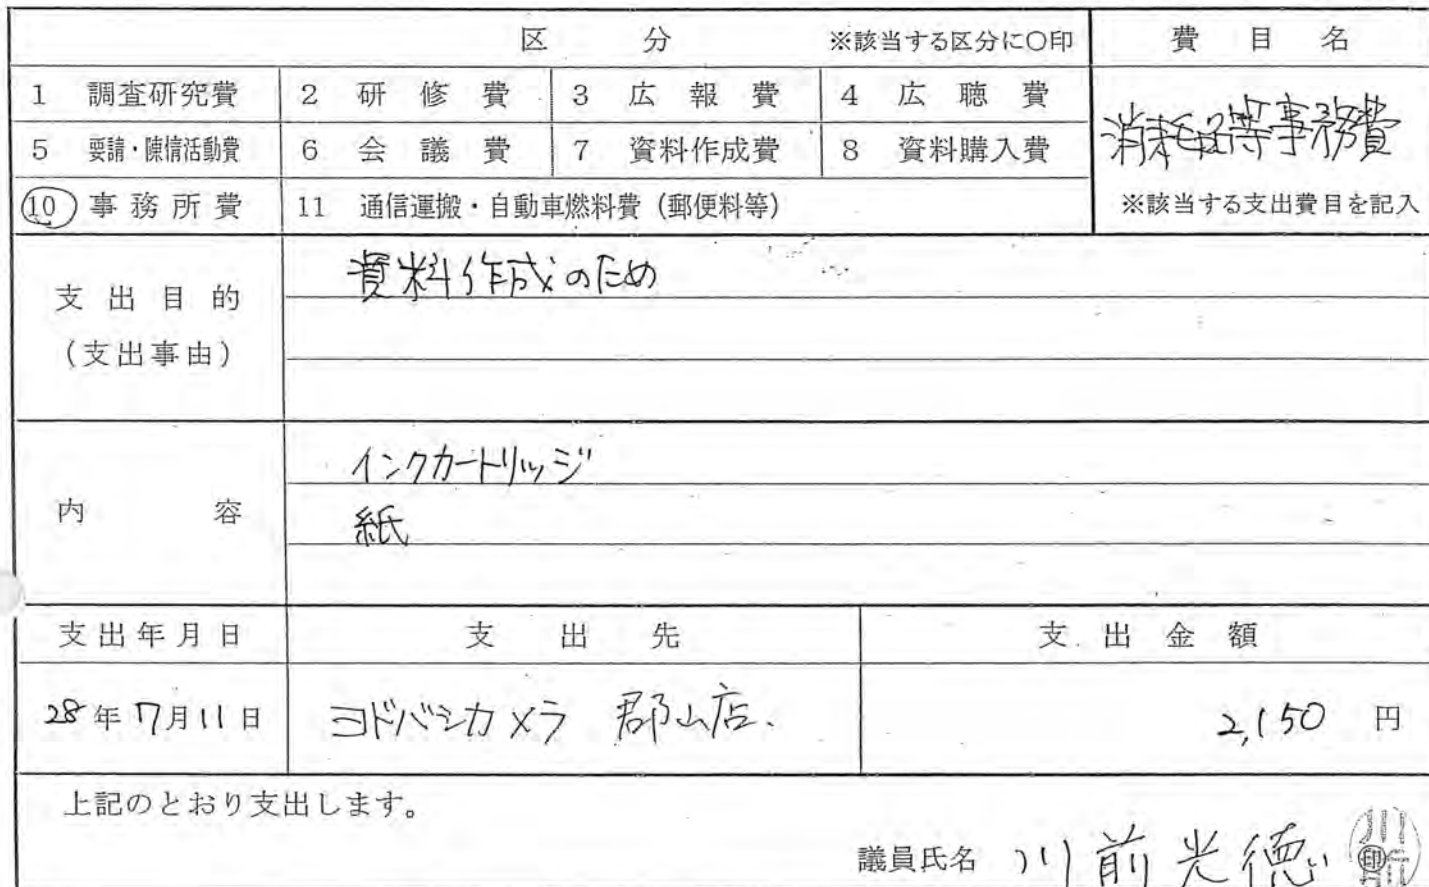 区 分 ※該当する区分に○印 費 目 名
1 調査研究費 2 研 修 費 3 広 報 費 4 広 聴 費
消耗品等事務費
5 要請・陳情活動費 6 会 議 費 7 資料作成費 8 資料購入費
10 事 務 所 費 11 通信運搬・自動車燃料費（郵便料等） ※該当する支出費目を記入
資料作成のため
支 出 目 的
（支出事由）
インクカートリッジ
内 容
紙
支出年月日 支 出 先 支 出 金 額
28年7月11日 ヨドバシカメラ 郡山店. 2,150 円
上記のとおり支出します。
議員氏名 川前光徳 印